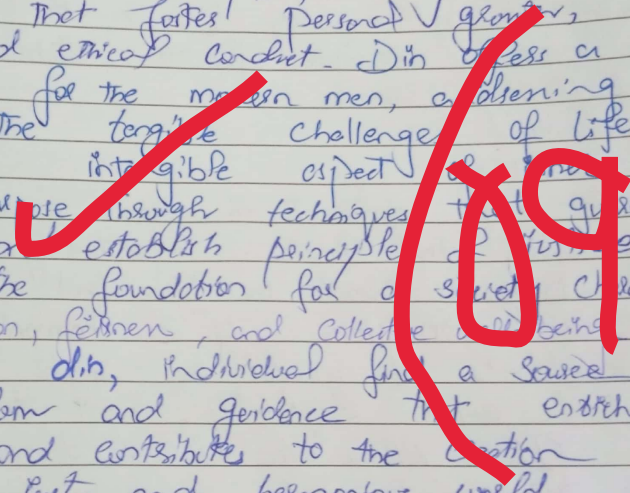 That foster personal growth,
ethical conduct. Din offers a
for the modern men, addressing
The tangible challenges of life
intangible aspect
through techniques that
establish principle of justice
foundation for a society
, and collective well being
din, individual find a source
and guidence that enrich
and contributes to the creation
and
09